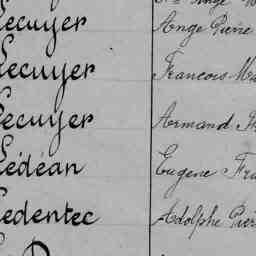 Lecuyer Ange Pierre
Lecuyer Francois
Lecuyer Armand
Lédéan Eugene
Ledentec Adolphe